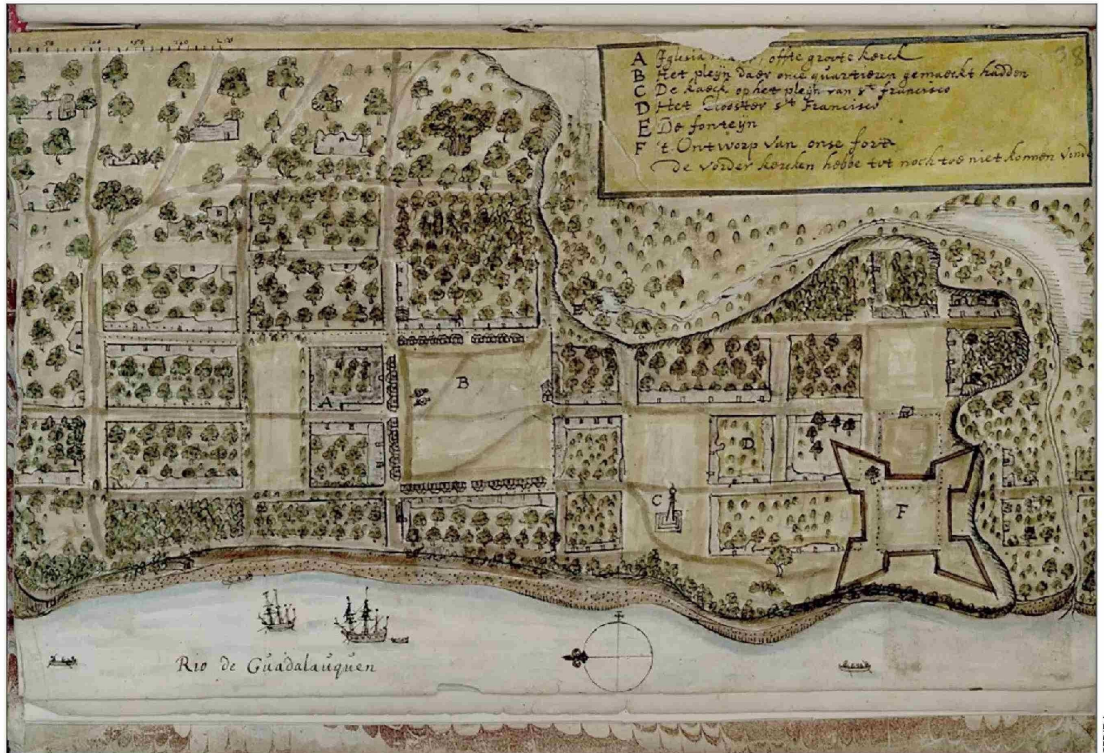 38
A Iglesia offte groote kerck
B Het pleyn daer onse quartieren gemaeckt hadden
C De kaeck op het pleyn van st francisco
D Het Clooster st Francisco
E De fonteyn
F 't Ontworp van onse fort
De vorder kercken hebbe tot noch toe niet konnen vinde
E
B
A
D
C
F
Rio de Guadalauquen